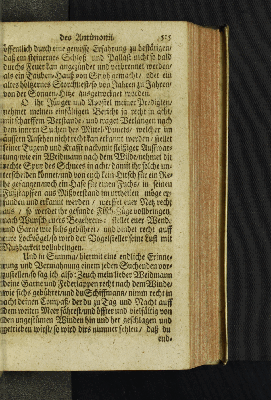 des Antimonii. 515
öffentlich durch eine gewisse Erfahrung zu bestätigen/
daß ein steinernes Schloß und Pallast nicht so bald
durchs Feuer kan angezündet und verbrennet werden/
als ein Tauben-Hauß von Stroh gemacht/ oder ein
altes höltzernes Storchnest/ so von Jahren zu Jahren
von der Sonnen-Hitze ausgetrocknet worden.
O ihr Jünger und Apostel meiner Predigten/
nehmet meinen einfältigen Bericht ja recht in acht
mit scharffem Verstande/ und traget Verlangen nach
dem innern Suchen des Mittel-Puncts/ weil er im
äussern Ansehen nicht recht kan erkannt werden/
seiner Tugend und Krafft nach mit fleißiger
wie ein Weidmann nach dem Wilde nehmet die
rechte Spur des Schnees in acht/ damit ihr solche
und
für einen Fuchs/ in seinen
Fußstapffen aus Mißverstand im urtheilen möge
und erkannt werden/ werffet euer Netz recht
aus/ so werdet ihr gesunde Fisch-Züge vollbringen/
nach Wunsch eures Begehrens: stellet euer
und Garne wie sichs gebühret/ und bindet recht auff
eure Lockvögel/ so wird der Vogelsteller seine Lust mit
Nutzbarkeit vollnbringen.
Und in Summa/ hiermit eine endliche Erinne-
rung und Vermahnung einem jeden Suchenden vor-
zustellen/ so sag ich also: Zeuch mein lieber Weidmann
deine Garne und Federlappen recht nach dem Winde/
wie sichs gebühret/ und du Schiffmann/ nimm recht in
acht deinen Compaß/ der du zu Tag und Nacht auff
dem weiten Meer fährest/ und öffter und vielfältig von
den ungestümen Winden hin und her geschlagen und
getrieben wirst/ so wird dirs nimmer fehlen/ daß du
end-